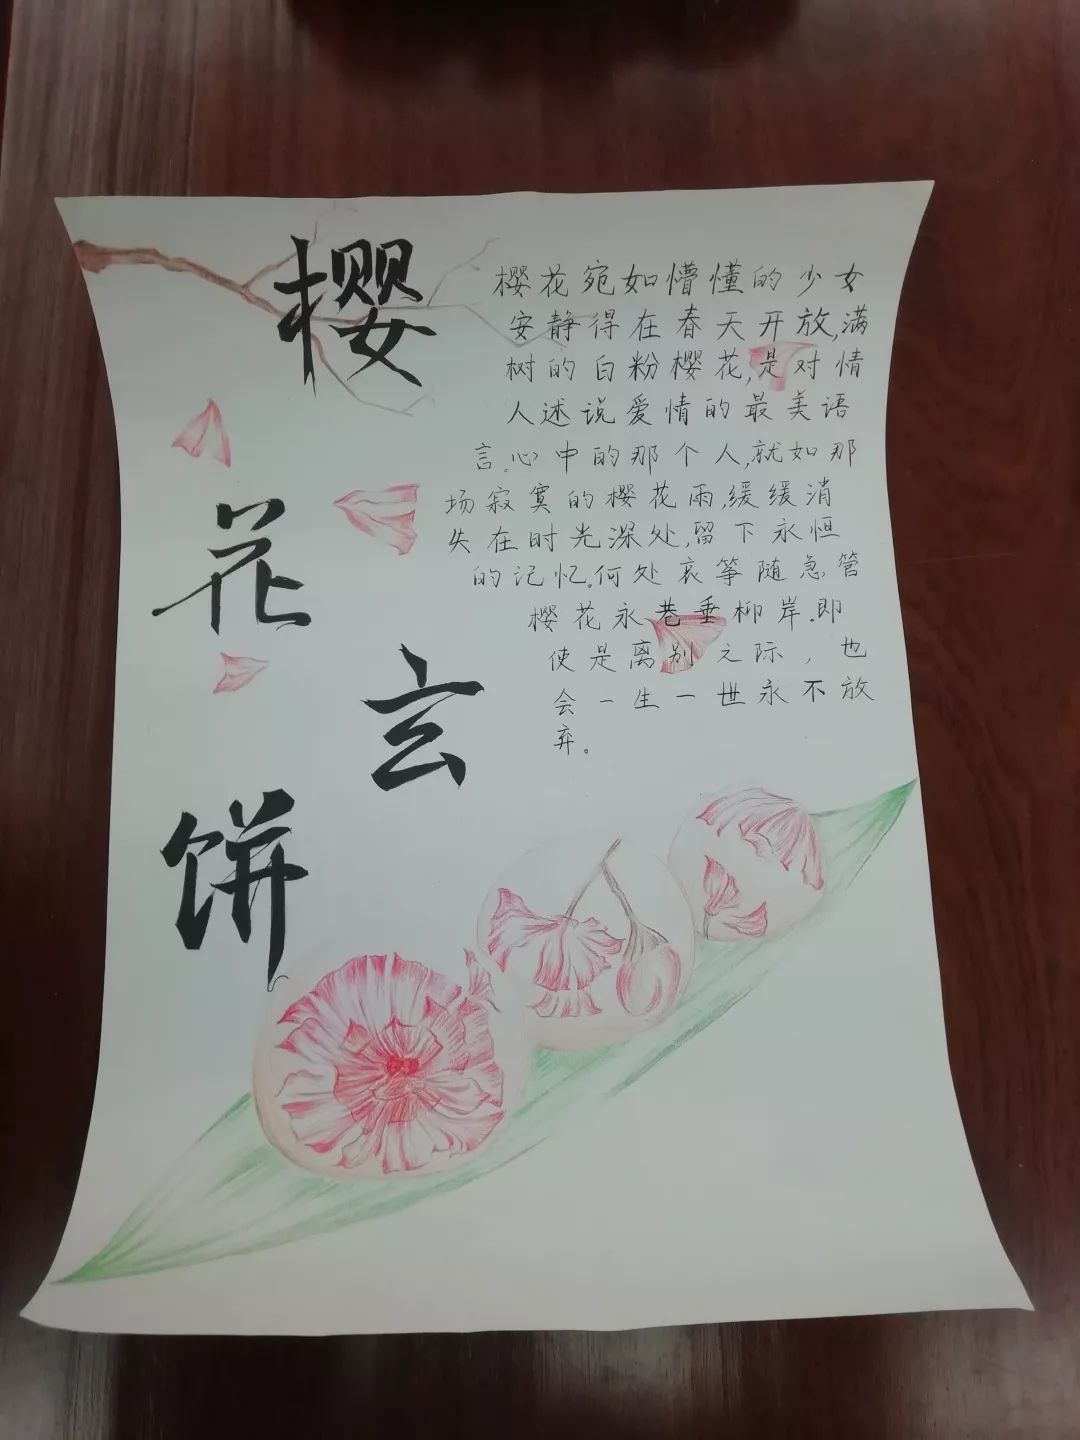 樱
花
玄
饼
樱花宛如懵懂的少女
安静得在春天开放,满
树的白粉樱花,是对情
人述说爱情的最美语
言。心中的那个人,就如那
场寂寞的樱花雨,缓缓消
失在时光深处,留下永恒
的记忆。何处哀筝随急管
樱花永巷垂柳岸.即
使是离别之际，也
会一生一世永不放
弃。